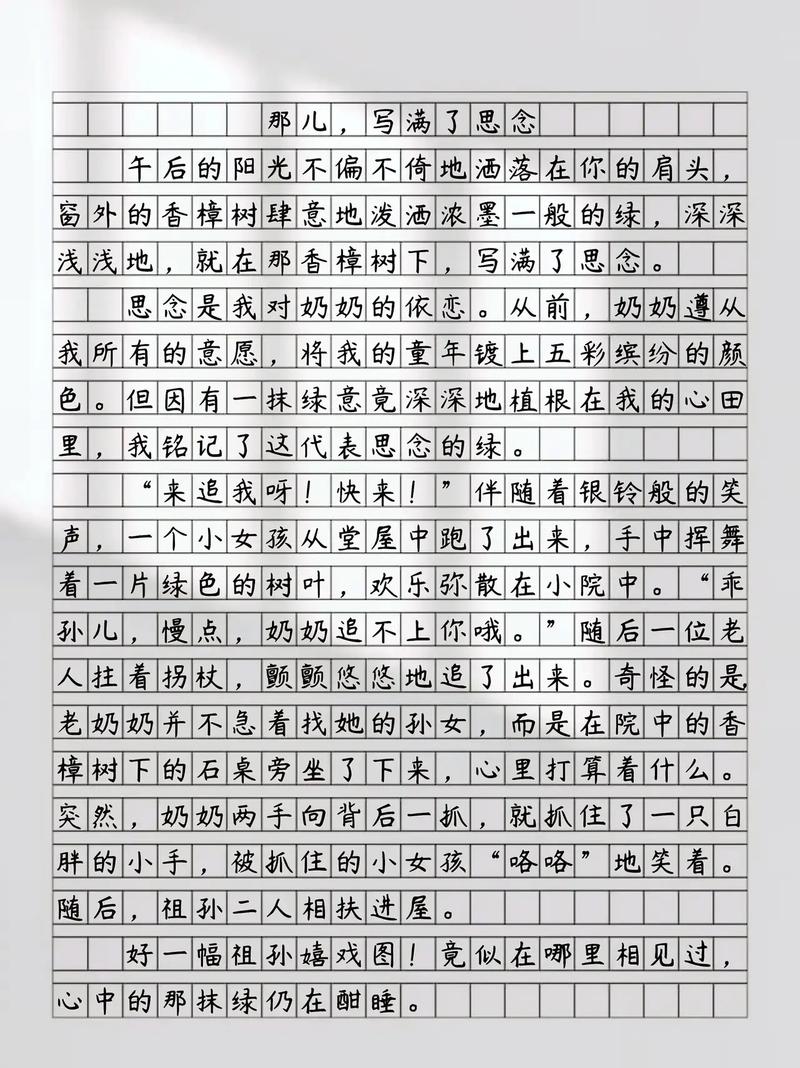 那儿，写满了思念
午后的阳光不偏不倚地洒落在你的肩头，
窗外的香樟树肆意地泼洒浓墨一般的绿，深深
浅浅地，就在那香樟树下，写满了思念。
思念是我对奶奶的依恋。从前，奶奶遵从
我所有的意愿，将我的童年镀上五彩缤纷的颜
色。但因有一抹绿意竟深深地植根在我的心田
里，我铭记了这代表思念的绿。
“来追我呀！快来！”伴随着银铃般的笑
声，一个小女孩从堂屋中跑了出来，手中挥舞
着一片绿色的树叶，欢乐弥散在小院中。“乖
孙儿，慢点，奶奶追不上你哦。”随后一位老
人拄着拐杖，颤颤悠悠地追了出来。奇怪的是，
老奶奶并不急着找她的孙女，而是在院中的香
樟树下的石桌旁坐了下来，心里打算着什么。
突然，奶奶两手向背后一抓，就抓住了一只白
胖的小手，被抓住的小女孩“咯咯”地笑着。
随后，祖孙二人相扶进屋。
好一幅祖孙嬉戏图！竟似在哪里相见过，
心中的那抹绿仍在酣睡。